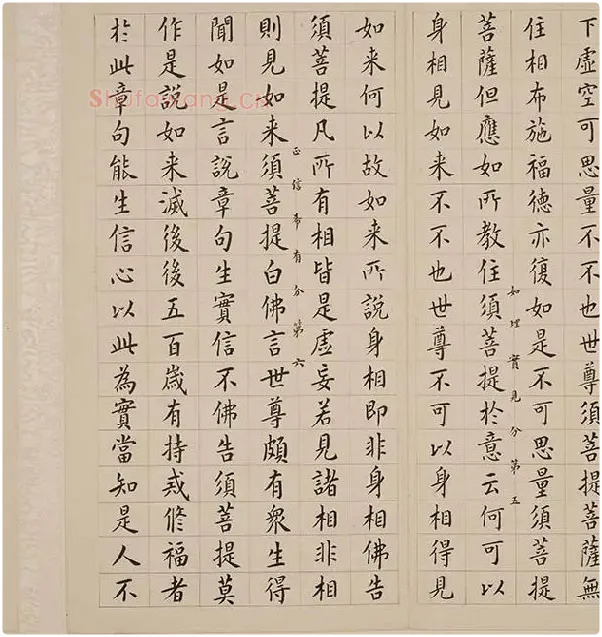 下虛空可思量不不也世尊須菩提菩薩無
住相布施福德亦復如是不可思量須菩提
如理實見分第五
菩薩但應如所教住須菩提於意云何可以
身相見如来不不也世尊不可以身相得見
如来何以故如来所說身相即非身相佛告
須菩提凡所有相皆是虛妄若見諸相非相
正信希有分第六
則見如来須菩提白佛言世尊頗有衆生得
聞如是言說章句生實信不佛告須菩提莫
作是說如来滅後後五百歲有持戒修福者
於此章句能生信心以此為實當知是人不
Shufawang.CN